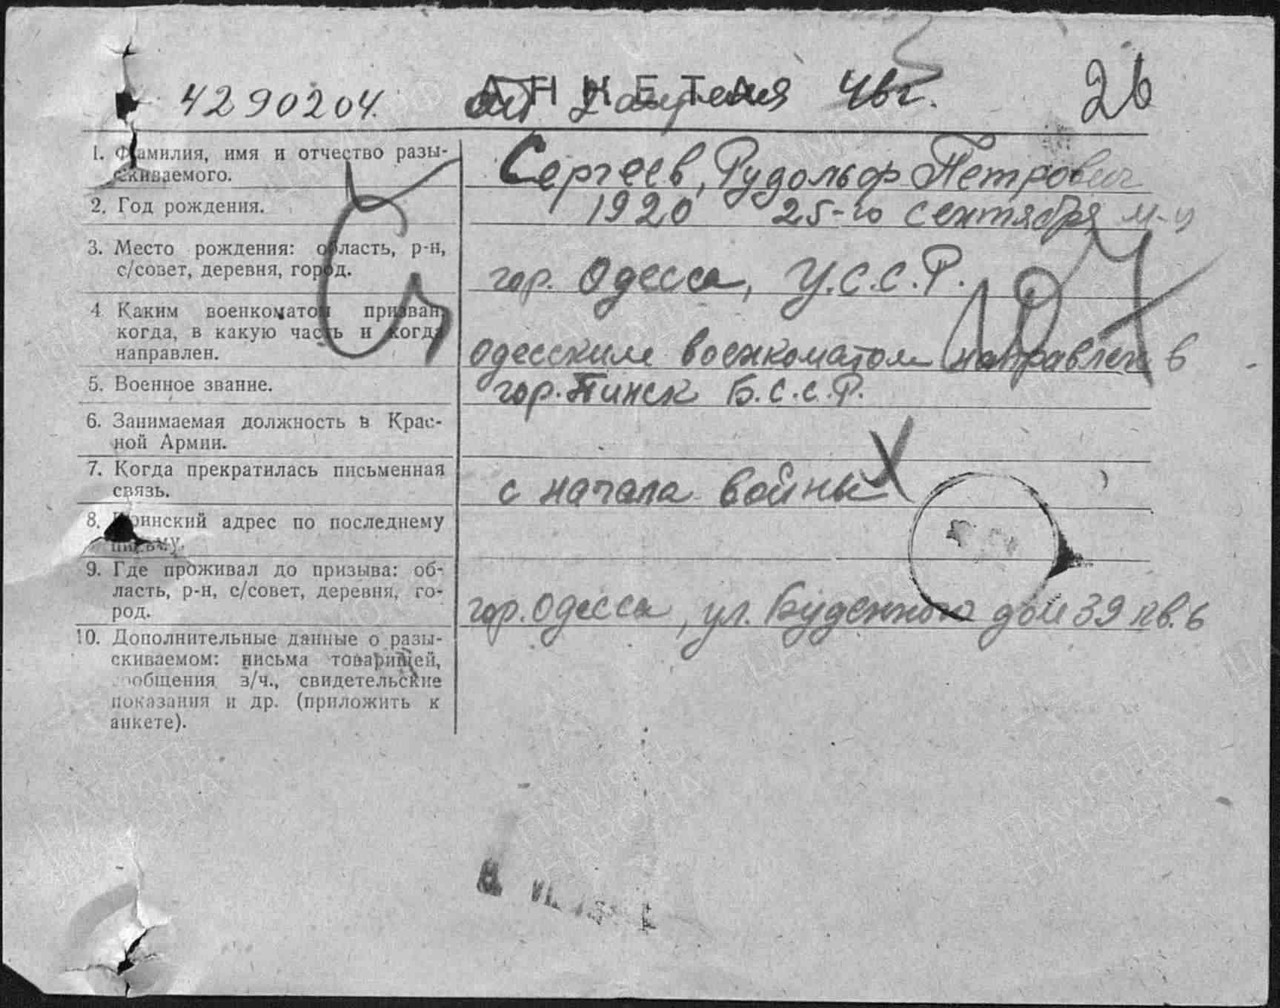 АНКЕТА
4290204. от 2 апреля 46г. 26
1. Фамилия, имя и отчество разы-
скиваемого.
Сергеев, Рудольф Петрович
2. Год рождения.
1920 25-го сентября м-ц
3. Место рождения: область, р-н,
с/совет, деревня, город.
гор. Одесса, У.С.С.Р.
4 Каким военкоматом призван,
когда, в какую часть и когда
направлен.
одесским военкоматом направлен в
5. Военное звание.
гор. Пинск Б.С.С.Р.
6. Занимаемая должность в Крас-
ной Армии.
7. Когда прекратилась письменная
связь.
с начала войны
8. Воинский адрес по последнему
письму.
9. Где проживал до призыва: об-
ласть, р-н, с/совет, деревня, го-
род.
гор. Одесса, ул. Буденного дом 39 кв. 6
10. Дополнительные данные о разы-
скиваемом: письма товарищей,
сообщения з/ч., свидетельские
показания и др. (приложить к
анкете).
ПАМЯТЬ
НАРОДА